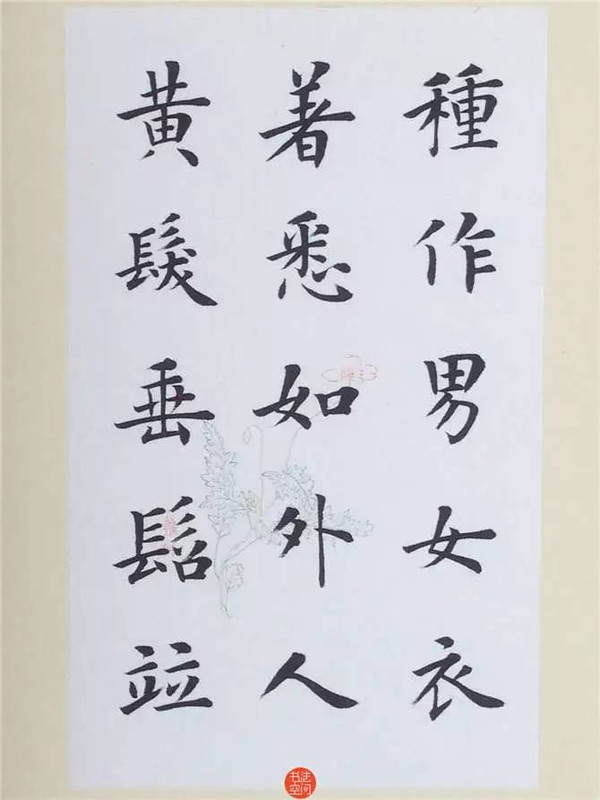 種作男女衣
著悉如外人
黄髮垂髫竝
书法空间